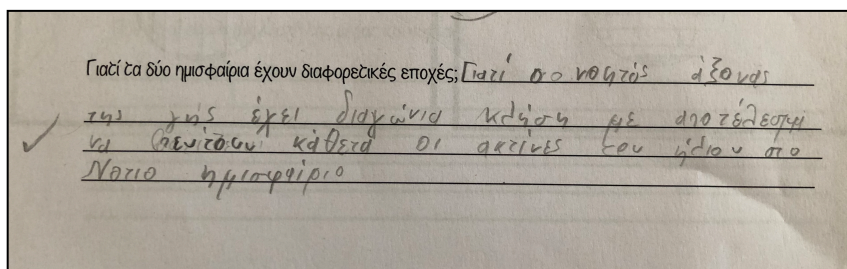 Γιατί τα δύο ημισφαίρια έχουν διαφορετικές εποχές; Γιατί ο νοητός άξονας
της γής έχει διαγώνια κλήση με αποτέλεσμα
να κάθετα οι ακτίνες του ήλιου στο
Νοτιο ημισφαίριο